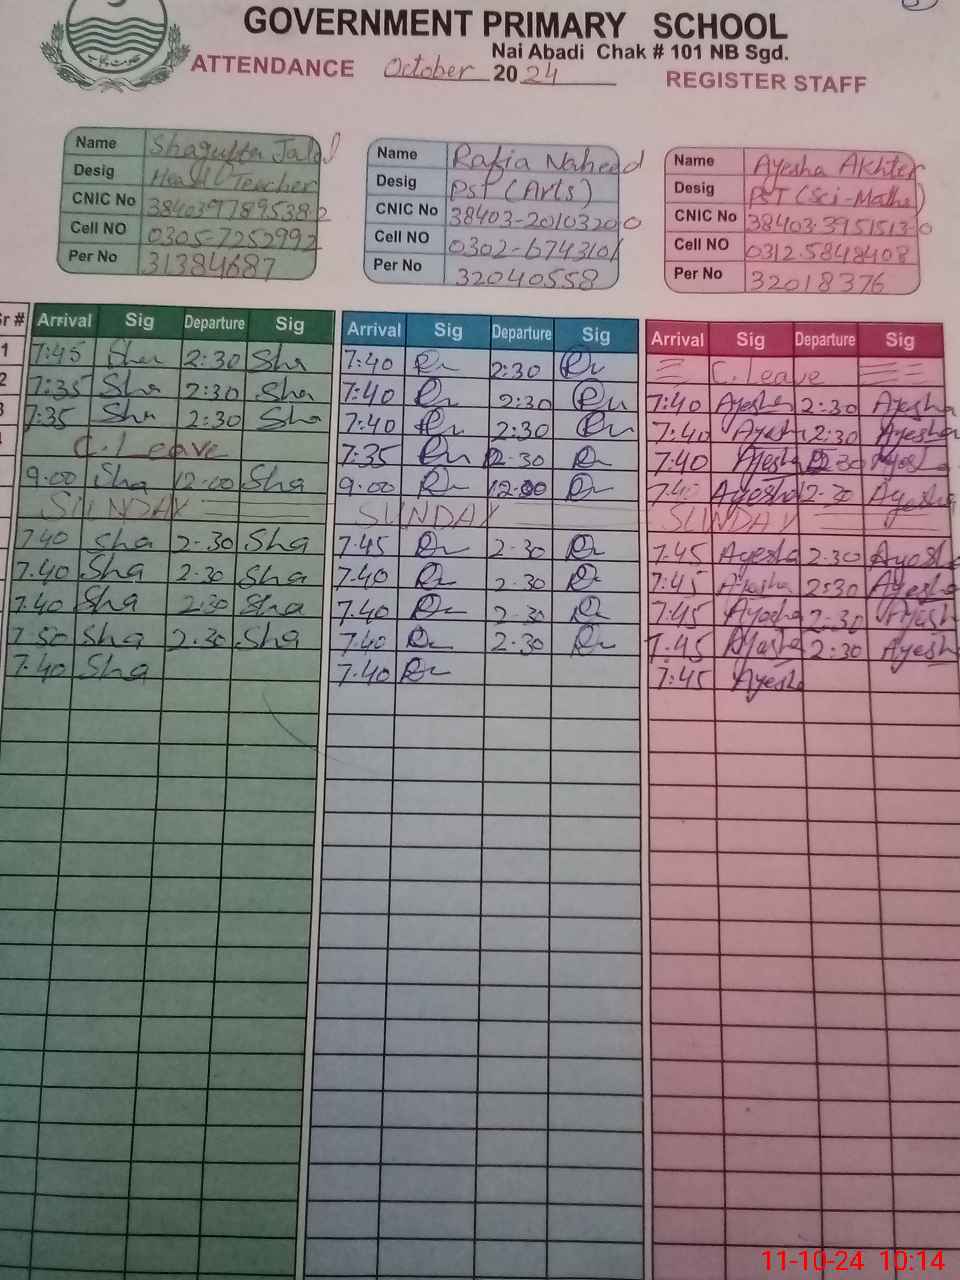 GOVERNMENT PRIMARY SCHOOL
Nai Abadi Chak # 101 NB Sgd.
ATTENDANCE October 20 24 REGISTER STAFF
Name Shagufta Jalal
Desig Head Teacher
CNIC No
Cell NO 0305-7252992
Per No 31384687
Name Rafia Naheed
Desig PST (Arts)
CNIC No 38403-2010320-0
Cell NO 0302-6743101
Per No 32040558
Name Ayesha Akhter
Desig PST (Sci-Math)
CNIC No 38403-3951513-0
Cell NO 0312-5848408
Per No 32018376
Sr # Arrival Sig Departure Sig Arrival Sig Departure Sig Arrival Sig Departure Sig
1 7:45 Sha 2:30 Sha 7:40 2:30 C.Leave
2 7:35 Sha 2:30 Sha 7:40 2:30 7:40 Ayesha 2:30 Ayesha
3 7:35 Sha 2:30 Sha 7:40 2:30 7:40 Ayesha 2:30 Ayesha
C.Leave 7:35 2-30 7:40 Ayesha 2:30 Ayesha
9:00 Sha 12:00 Sha 9:00 12:00 7:40 Ayesha 2-30 Ayesha
SUNDAY SUNDAY SUNDAY
7:40 Sha 2-30 Sha 7:45 2-30 7:45 Ayesha 2:30 Ayesha
7.40 Sha 2-30 Sha 7:40 2-30 7:45 Ayesha 2:30 Ayesha
7.40 Sha 2:30 Sha 7:40 2-30 7:45 Ayesha 2-30 Ayesha
7.50 Sha 2.30 Sha 7:40 2-30 7:45 Ayesha 2:30 Ayesha
7.40 Sha 7:40 7:45 Ayesha
11-10-24 10:14